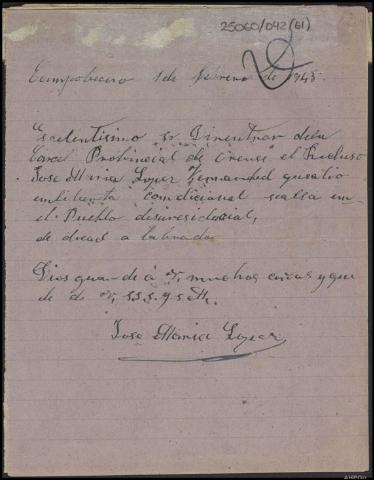 25060/042(61)
Campobecero 1 de febrero de 1945.
Escelentisimo sr Direntrar dela
Carcel Provincial de Orense el Recluso
Jose Maria Lopez Fernandez quesalio
enlibarta condicional sealla en
el Pueblo desuresidencial,
de dicad a labrador
Dios guarde a V, muchos años y que
de de V, S.S.S. q s e M.
Jose Maria Lopez